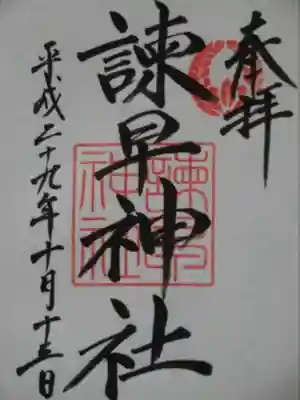 奉拝
諫早神社
諫早
神社
平成二十九年十月十三日